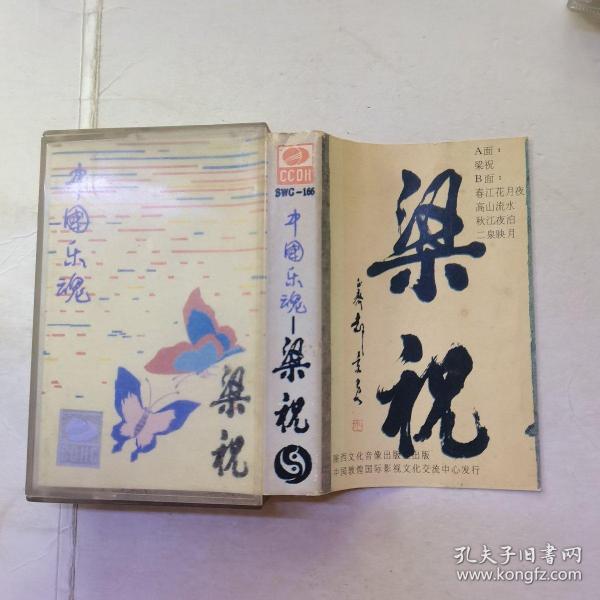 中國乐魂
梁祝
CCDH
CCDH
SWG-166
中國乐魂—梁祝
A面：
梁祝
B面：
春江花月夜
高山流水
秋江夜泊
二泉映月
梁祝
陕西文化音像出版社出版
中国敦煌国际影视文化交流中心发行
孔夫子旧书网
www.kongfz.com